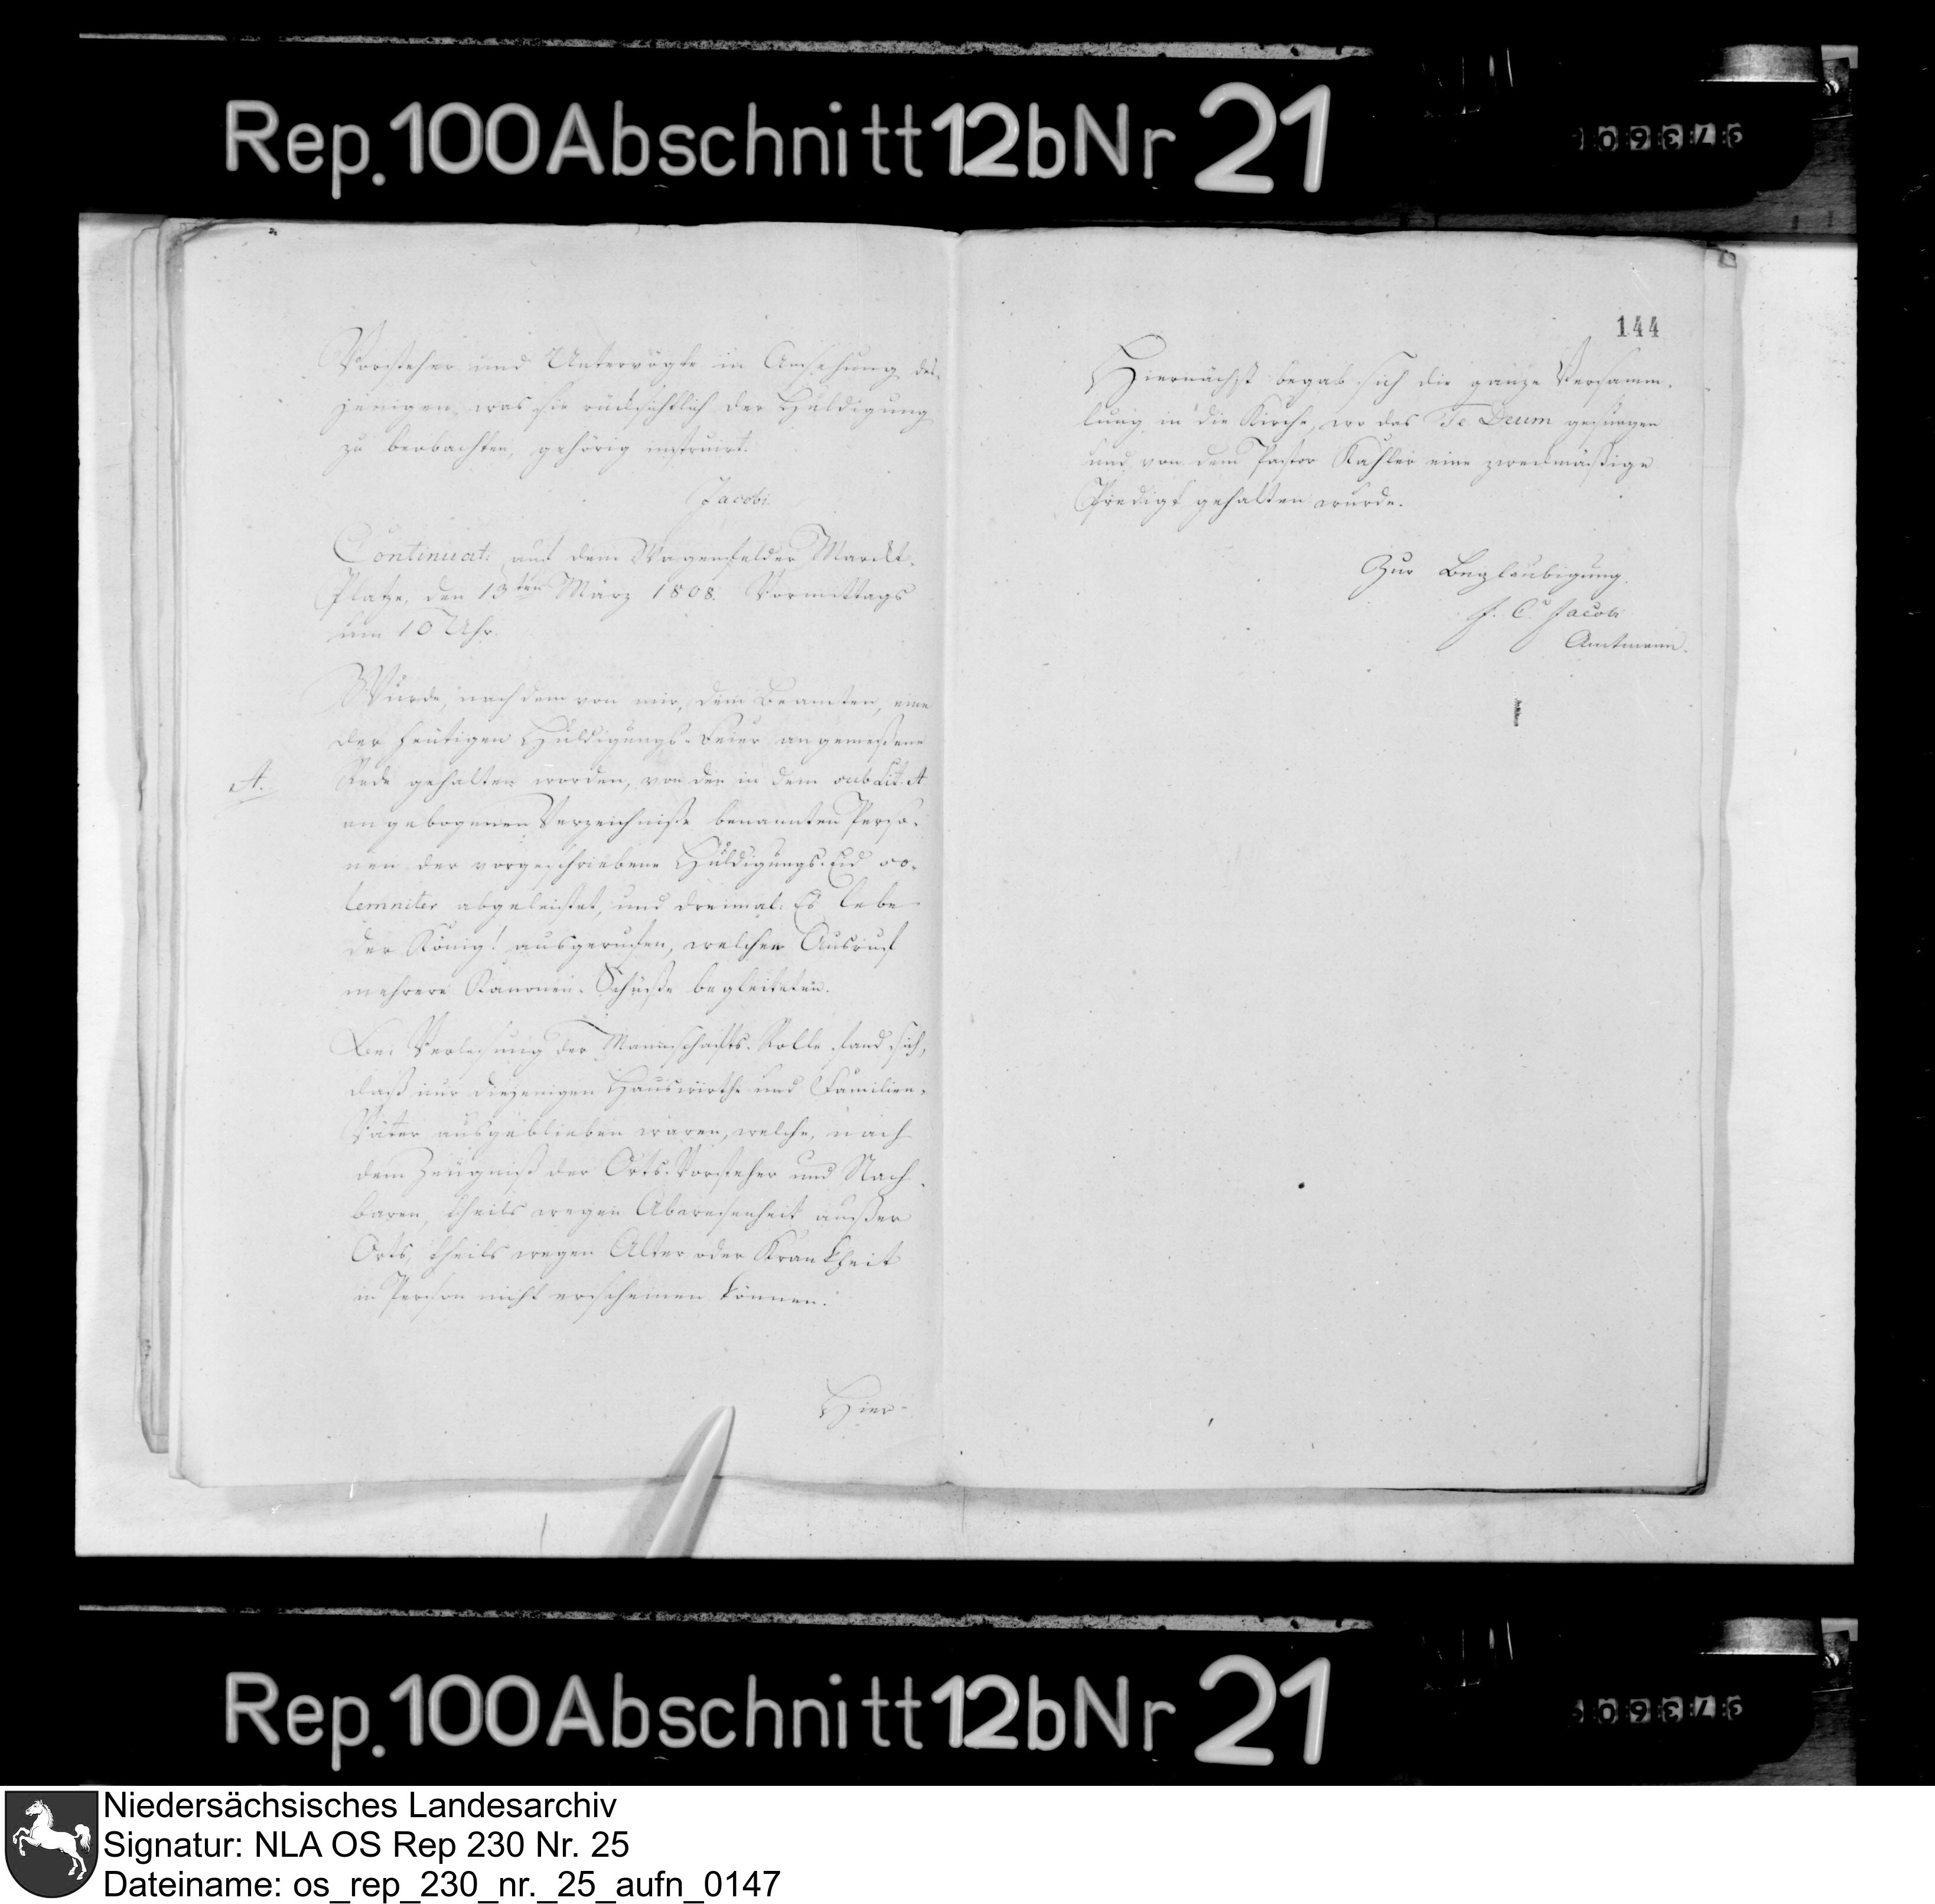 Rep. 100 Abschnitt 12b Nr 21
Vorsteher und Untervögte in Ansehung des-
jenigen, was sie rücksichtlich der Huldigung
zu beobachten, gehörig instruirt.
Jacobi
Continuat: auf dem Wagenfelder Markt-
Platze, den 13ten März 1808. Vormittags
um 10 Uhr.
Wurde, nachdem von mir, dem Beamten, eine
der heutigen Huldigungs-Feier angemeßene
A.
Rede gehalten worden, von den in dem sub Lit: A
angebogenen Verzeichniße benannten Perso-
nen der vorgeschriebene Huldigungs-Eid so-
lemniter abgeleistet, und dreimal: Es lebe
der König! ausgerufen, welchen Ausruf
mehrere Kanonen-Schüße begleiteten.
Bei Verlesung der Mannschafts-Rolle fand sich,
daß nur diejenigen Hauswirthe und Familien-
Väter ausgeblieben waren, welche, nach
dem Zeugniß der Orts-Vorsteher und Nach-
baren, theils wegen Abwesenheit außer
Orts, theils wegen Alter oder Krankheit
in Person nicht erscheinen können.
Hier-
144
Hiernächst begab sich die ganze Versamm-
lung in die Kirche, wo das Te Deum gesungen
und von dem Pastor Kahler eine zweckmäßige
Predigt gehalten wurde.
Zur Beglaubigung.
J. C. Jacobi
Amtmann.
Rep. 100 Abschnitt 12b Nr 21
Niedersächsisches Landesarchiv
Signatur: NLA OS Rep 230 Nr. 25
Dateiname: os_rep_230_nr._25_aufn_0147